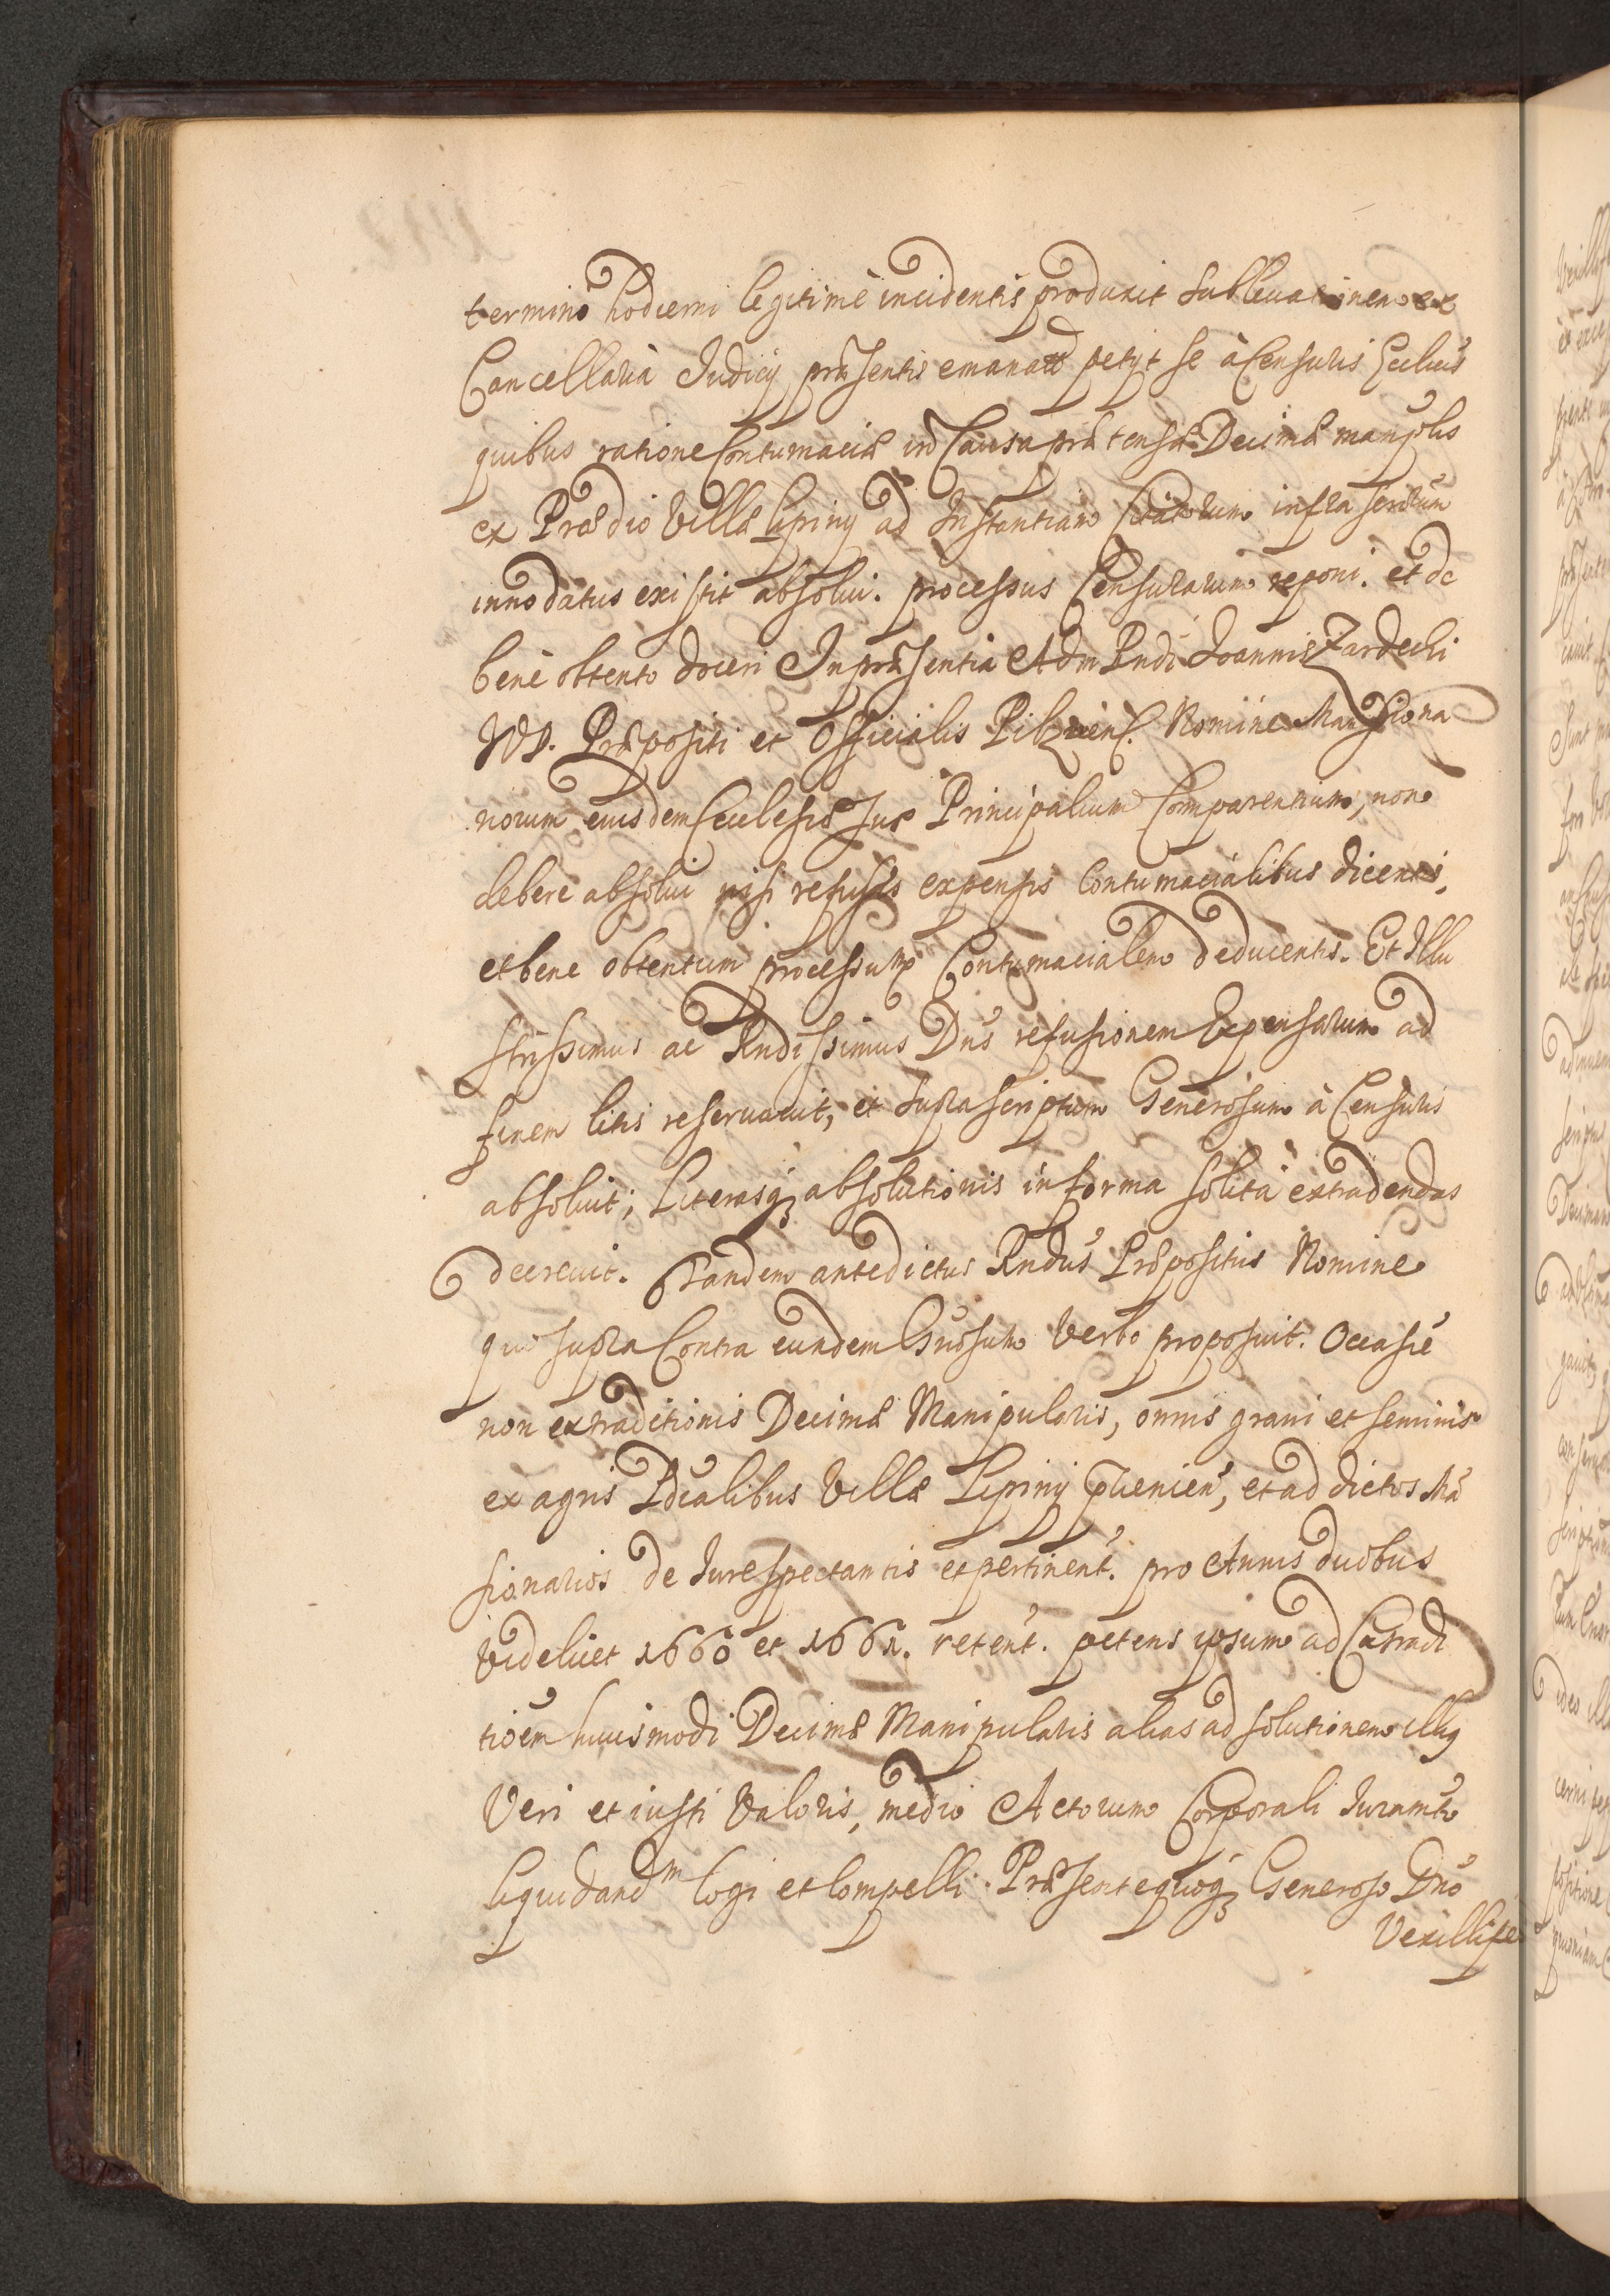 termino hodierni legitimè incidentis produxit subleuationem ex
Cancellaria Judicij præsentis emanatt petijt se à Censuris Ecclicis
quibus ratione Contumaciæ in Causa prætensæ Decimæ manplis
ex Prædio Villæ Lipiny ad Instantiam Citatorum infrascriptum
innodatus existit absolui. processus Censurarum reponi. et de
benè obtento doceri In præsentia Adm Rndi Joannis Zardecki
Præpositi et Officialis Pilznens. Nomine Mansiona
norum eiusdem Ecclesiæ suæ Principalium Comparentium, non
debere absolui nisi refusis expensis Contumacialibus dicentis,
et bene obtentum processum Contumacialem deducentis. Et Illu
strissimus ac Rndissimus Dns refusionem Expensarum ad
finem litis reseruauit, et suprascriptum Generosum à Censuris
absoluit; Literasq; absolutionis in forma solita extradendas
decreuit. Tandem antedictus Rndus Præpositus Nomine
quo supra Contra eundem Gnosum Verbo proposuit. Occasie
non extraditionis Decimæ Manipularis, omnis grani et seminis
ex agris Pdialibus Villæ Lipiny puenien, et ad dictos Ma
sionarios de Jure spectantis et pertinent. pro Annis duobus
videlicet 1660 et 1661. retent. petens ipsum ad Extradi
tioem huiusmodi Decimæ Manipularis alias ad solutionem illiq
Veri et iusti Valoris, medio Actorum Corporali Juramto
liquidandm Cogi et Compelli. Præsente quoq; Generoso Dno
Vexillife